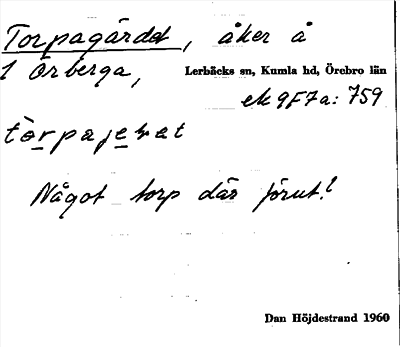 Torpagärdet, åker å
1 Örberga, Lerbäcks sn, Kumla hd, Örebro län
ek 9F7a: 759
tòrpajeɽat
Något torp där förut?
Dan Höjdestrand 1960